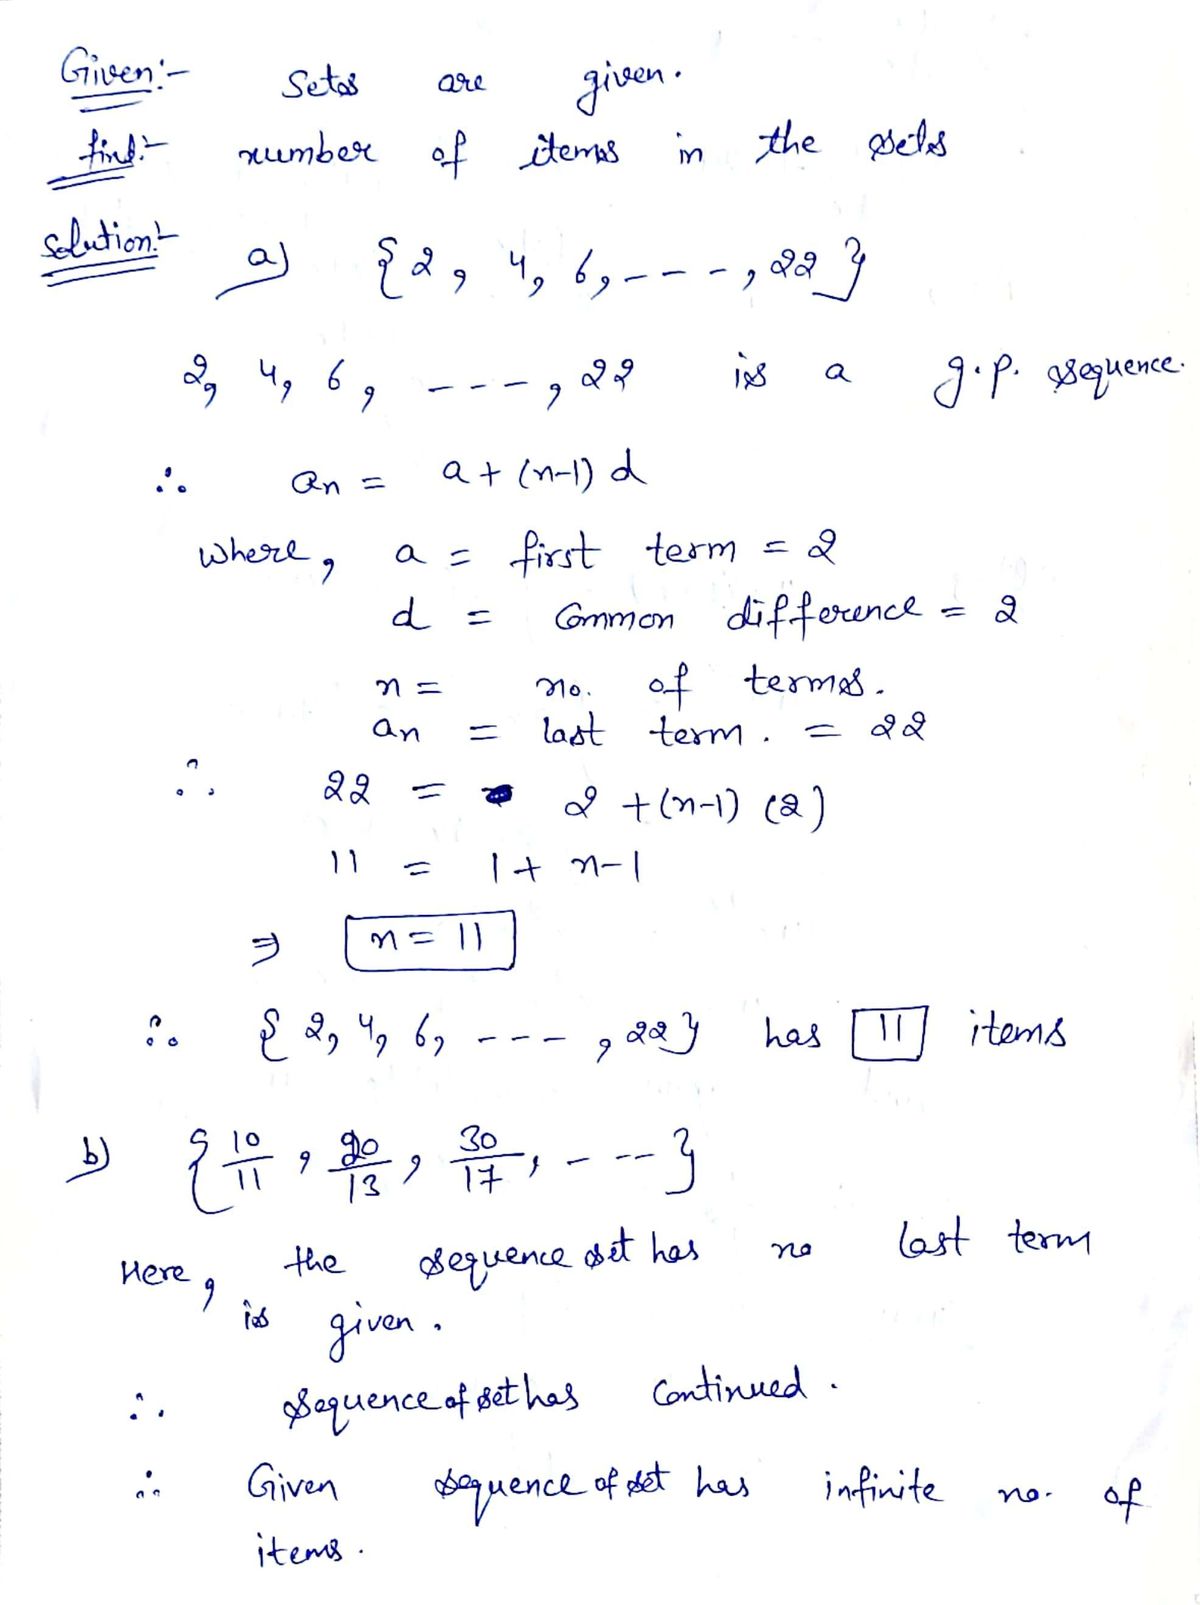 Given:- Sets are given.
find:- number of items in the sets
Solution:- a) {2, 4, 6, ---, 22}
2, 4, 6, ---, 22 is a g.p. sequence.
∴ an = a + (n-1) d
where, a = first term = 2
d = Common difference = 2
n = no. of terms.
an = last term. = 22
∴ 22 = 2 + (n-1) (2)
11 = 1 + n-1
⇒ n = 11
∴ {2, 4, 6, ---, 22} has 11 items
b) {10/11, 20/13, 30/17, ---}
Here, the sequence set has no last term
is given.
∴ sequence of set has Continued.
∴ Given sequence of set has infinite no. of
items.